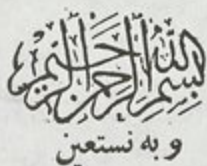 بسم الله الرحمن الرحيم
و به نستعين